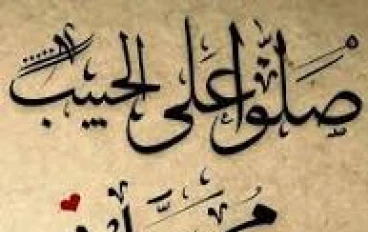 صَلُّوا عَلى الحبيب